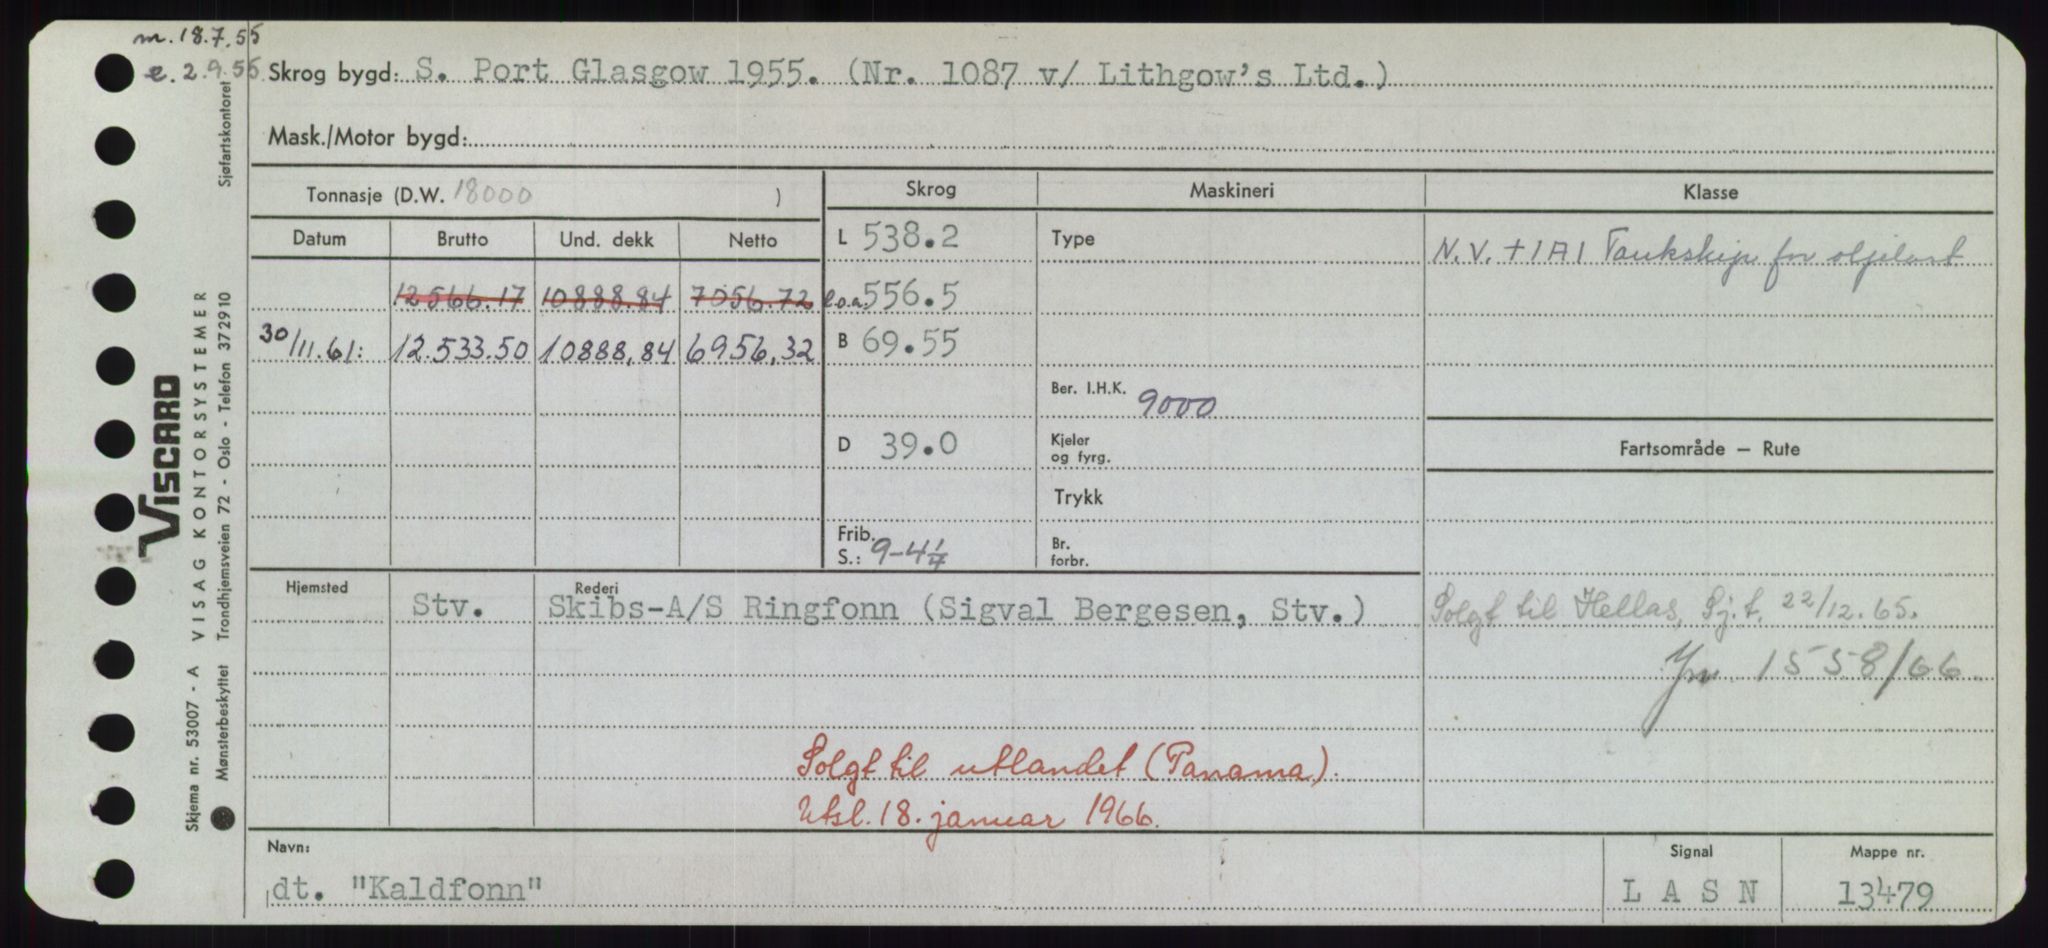 m. 18.7.55
e. 2.9.55 Skrog bygd: S. Port Glasgow 1955. (Nr. 1087 v/ Lithgow's Ltd.)
Mask./Motor bygd:
Tonnasje (D.W. 18000 ) Skrog Maskineri Klasse
Datum Brutto Und. dekk Netto L 538.2 Type N.V. + 1A1 Tankskip for oljelast
12566.17 10888.84 7056.72 l.o.a. 556.5
30/11.61: 12.533.50 10888,84 6956,32 B 69.55
Ber. I.H.K. 9000
D 39.0 Kjeler og fyrg. Fartsområde — Rute
Trykk
Frib. S.: 9-4 Br. forbr.
Hjemsted Stv. Rederi Skibs-A/S Ringfonn (Sigval Bergesen, Stv.) Solgt til Hellas, Sj.t. 22/12.65.
1558/66.
Solgt til utlandet (Panama).
Utsl. 18. januar 1966.
Navn: Signal Mappe nr.
dt. "Kaldfonn" L A S N 13479
Skjema nr. 53007 - A VISAG KONTORSYSTEMER Sjøfartskontoret
Mønsterbeskyttet Trondhjemsveien 72 - Oslo - Telefon 372910
VISCARD